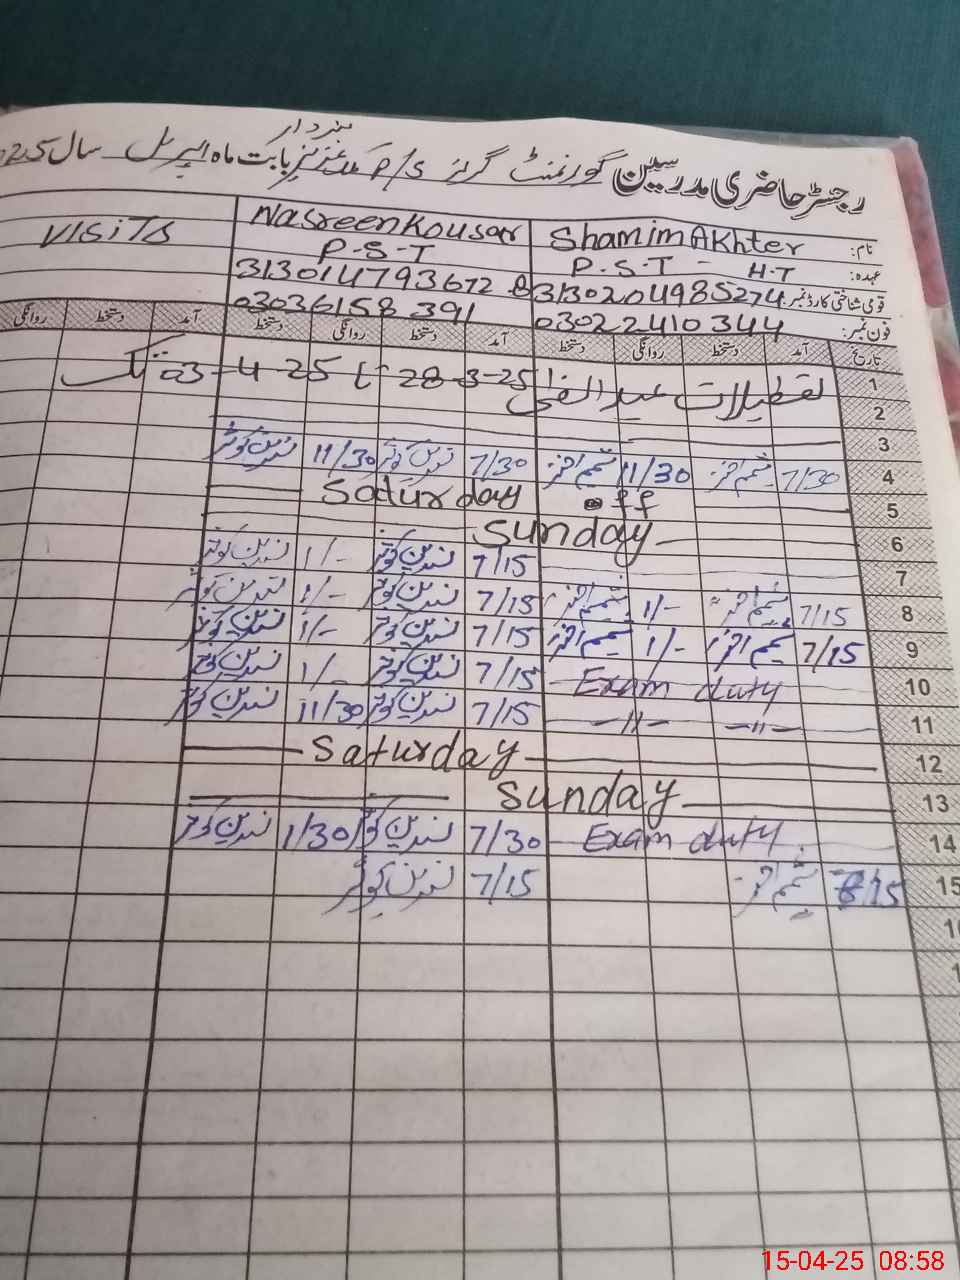 نمبردار
رجسٹر حاضری مدرسین گورنمنٹ گرلز P/S عزیز بابت ماہ اپریل سال 025
نام: Shamim Akhter Nasreen Kousar VISITS
عہدہ: P.S.T - H.T P.S.T
قومی شناختی کارڈ نمبر: 3130204985274 3130147936728
فون نمبر: 03022410344 03036158391
تاریخ آمد دستخط روانگی دستخط آمد دستخط روانگی دستخط آمد دستخط روانگی
1 تعطیلات عید الفطر 28-3-25 تا 03-4-25 تک
2
3
4 7/30 شمیم اختر 11/30 شمیم اختر 7/30 نسرین کوثر 11/30 نسرین کوثر
5 Saturday off
6 Sunday
7 7/15 نسرین کوثر 1/- نسرین کوثر
8 7/15 شمیم اختر 1/- شمیم اختر 7/15 نسرین کوثر 1/- نسرین کوثر
9 7/15 شمیم اختر 1/- شمیم اختر 7/15 نسرین کوثر 1/- نسرین کوثر
10 Exam duty 7/15 نسرین کوثر 1/- نسرین کوثر
11 -"- -"- 7/15 نسرین کوثر 11/30 نسرین کوثر
12 Saturday
13 Sunday
14 Exam duty 7/30 نسرین کوثر 1/30 نسرین کوثر
15 شمیم اختر 7/15 نسرین کوثر
15-04-25 08:58